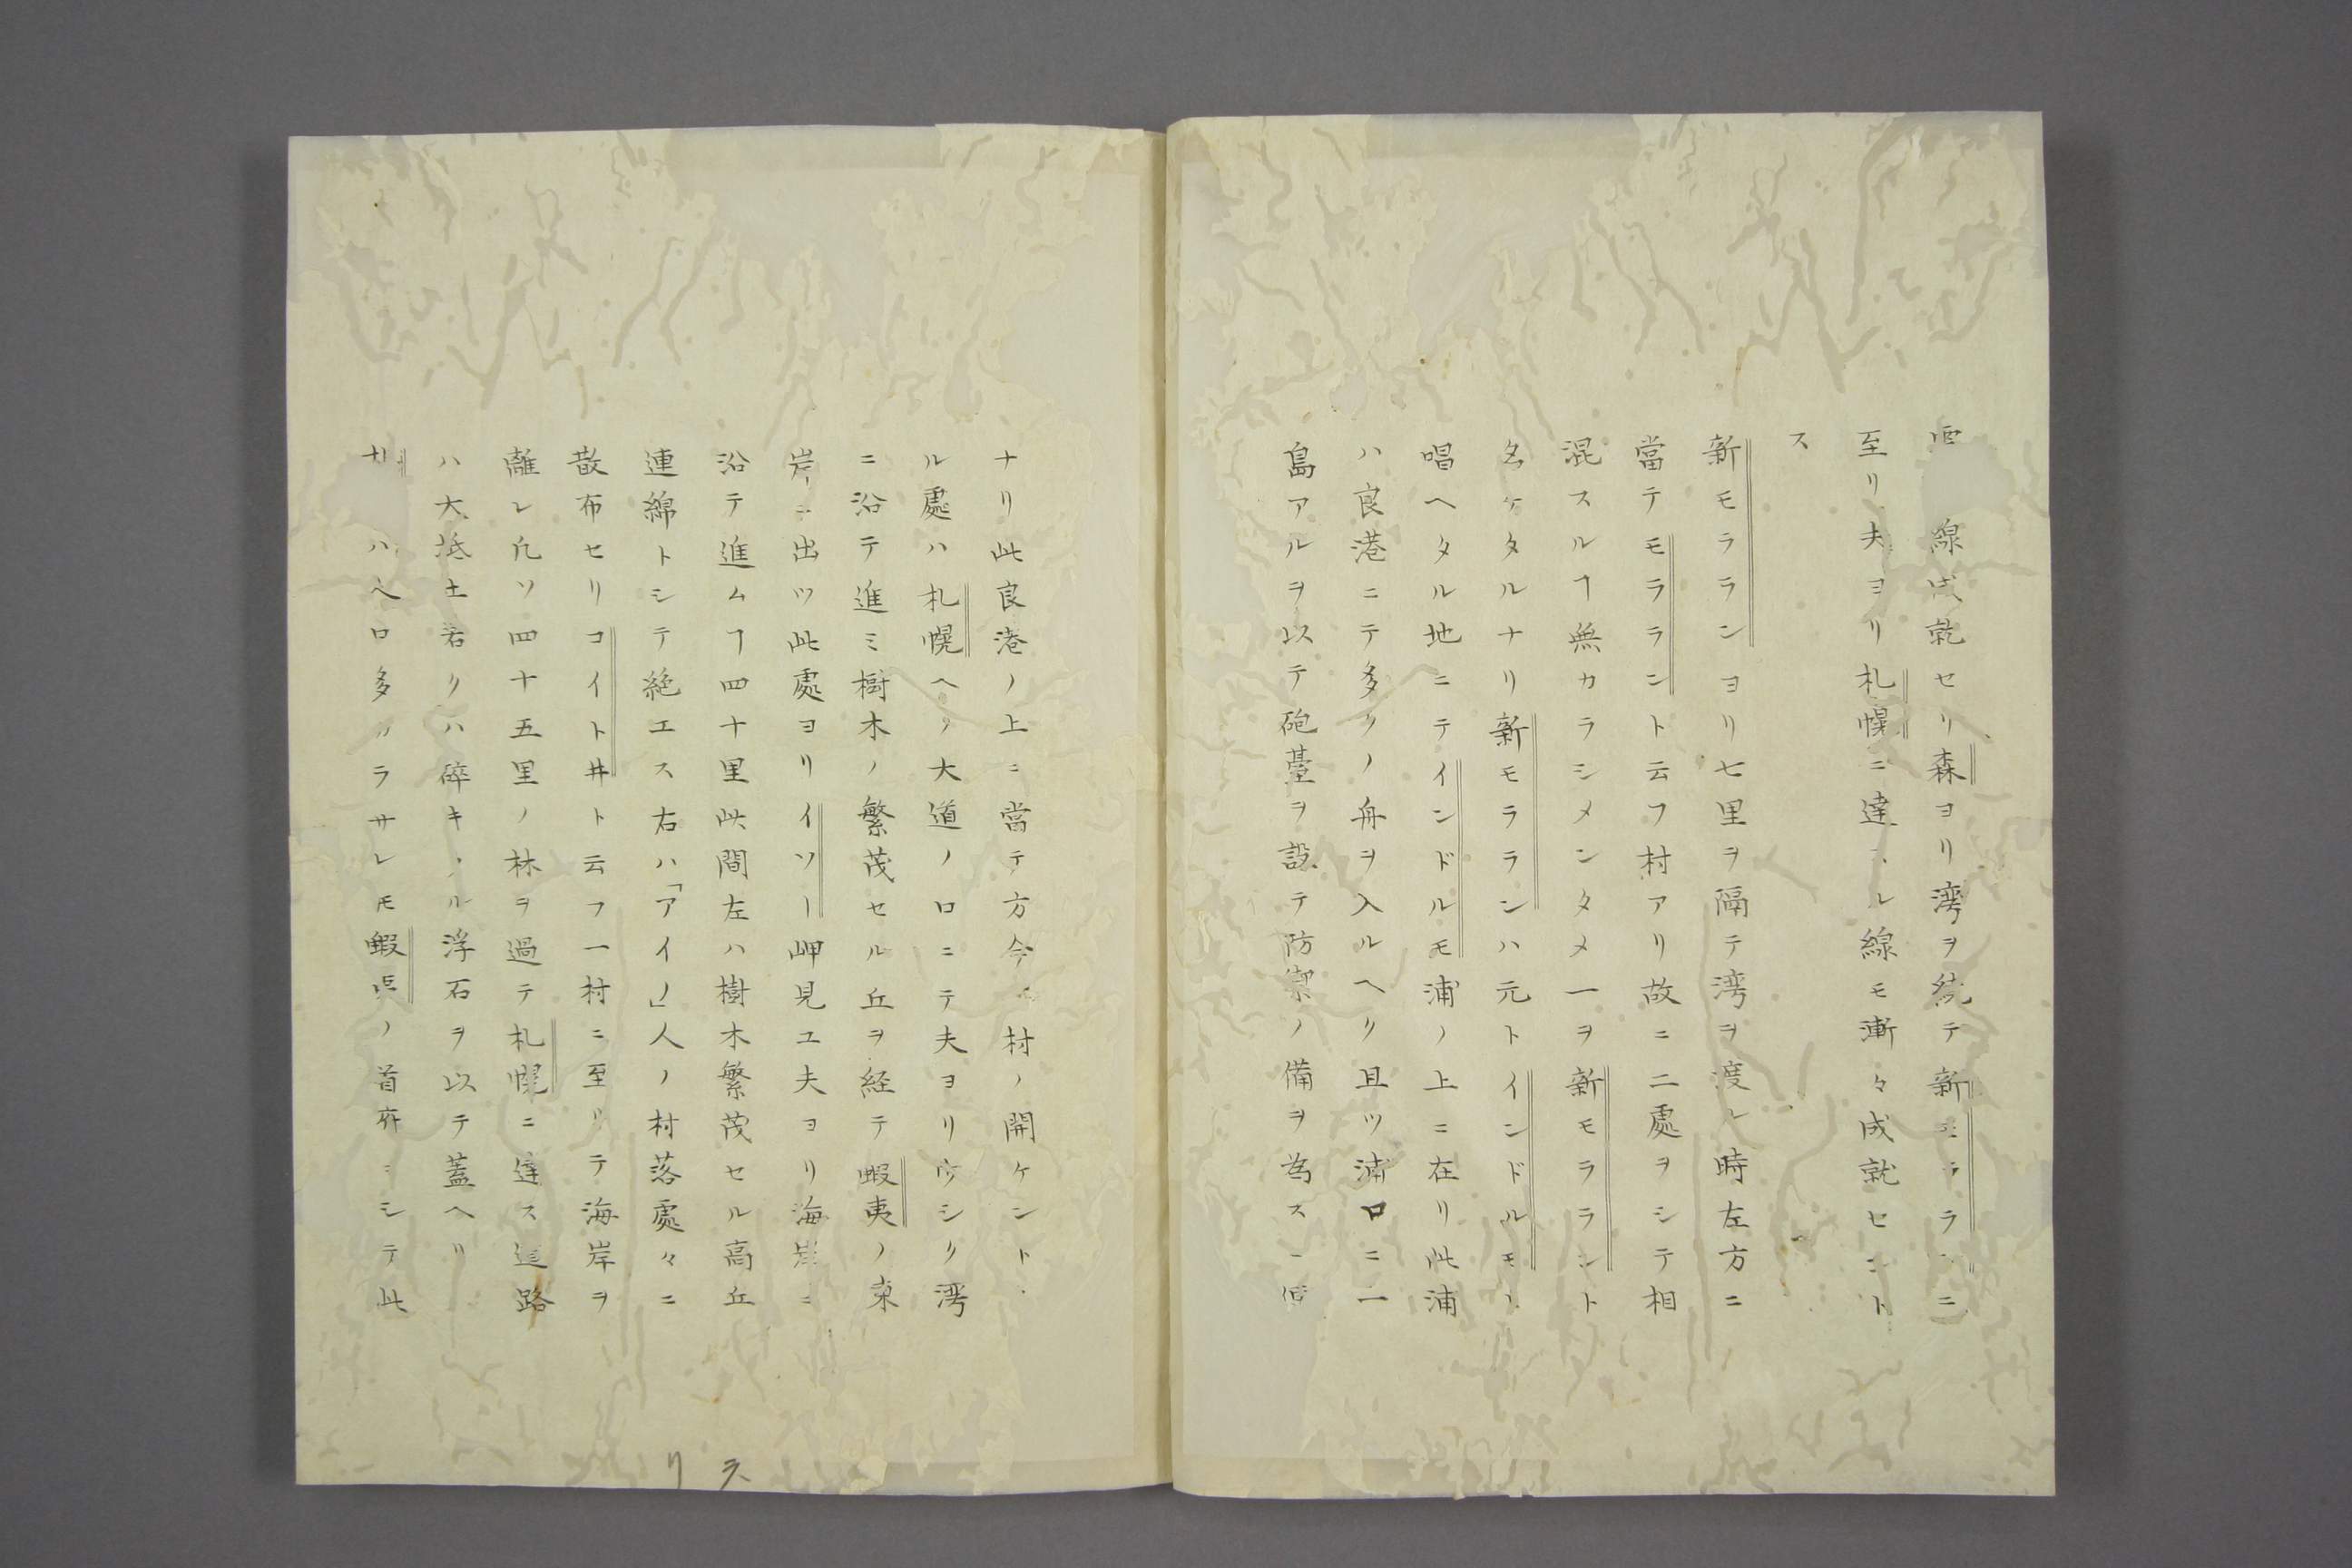 線成就セリ森ヨリ湾ヲ続テ新モララニ
至リ夫ヨリ札幌ニ達スル線モ漸々成就セント
ス
新モラランヨリ七里ヲ隔テ湾ヲ渡レ時左方ニ
當テモララント云フ村アリ故ニ二處ヲシテ相
混スルヿ無カラシメンタメ一ヲ新モラランド
名ケタルナリ新モラランハ元トインドルモト
唱ヘタル地ニテインドルモ浦ノ上ニ在リ此浦
ハ良港ニテ多クノ舟ヲ入ルヘク且ツ浦口ニ二
島アルヲ以テ砲䑓ヲ設テ防禦ノ備ヲ為ス
ナリ此良港ノ上ニ當テ方今一村ノ開ケント
ル處ハ札幌ヘノ大道ノ口ニテ夫ヨリウシリ湾
ニ沿テ進ミ樹木ノ繁茂セル丘ヲ経テ蝦夷ノ東
岸ニ出ツ此處ヨリイソー岬見ユ夫ヨリ海岸ニ
沿テ進ムヿ四十里此間左ハ樹木繁茂セル高丘
連綿トシテ絶エス右ハ「アイノ」人ノ村落處々ニ
散布セリコイト井ト云フ一村ニ至リテ海岸ヲ
離レ凡ソ四十五里ノ林ヲ過テ札幌ニ達ス道路
ハ大抵土若クハ碎キタル浮石ヲ以テ蓋ヘリ
ハ人口多カラサレモ蝦夷ノ首府ニシテ此